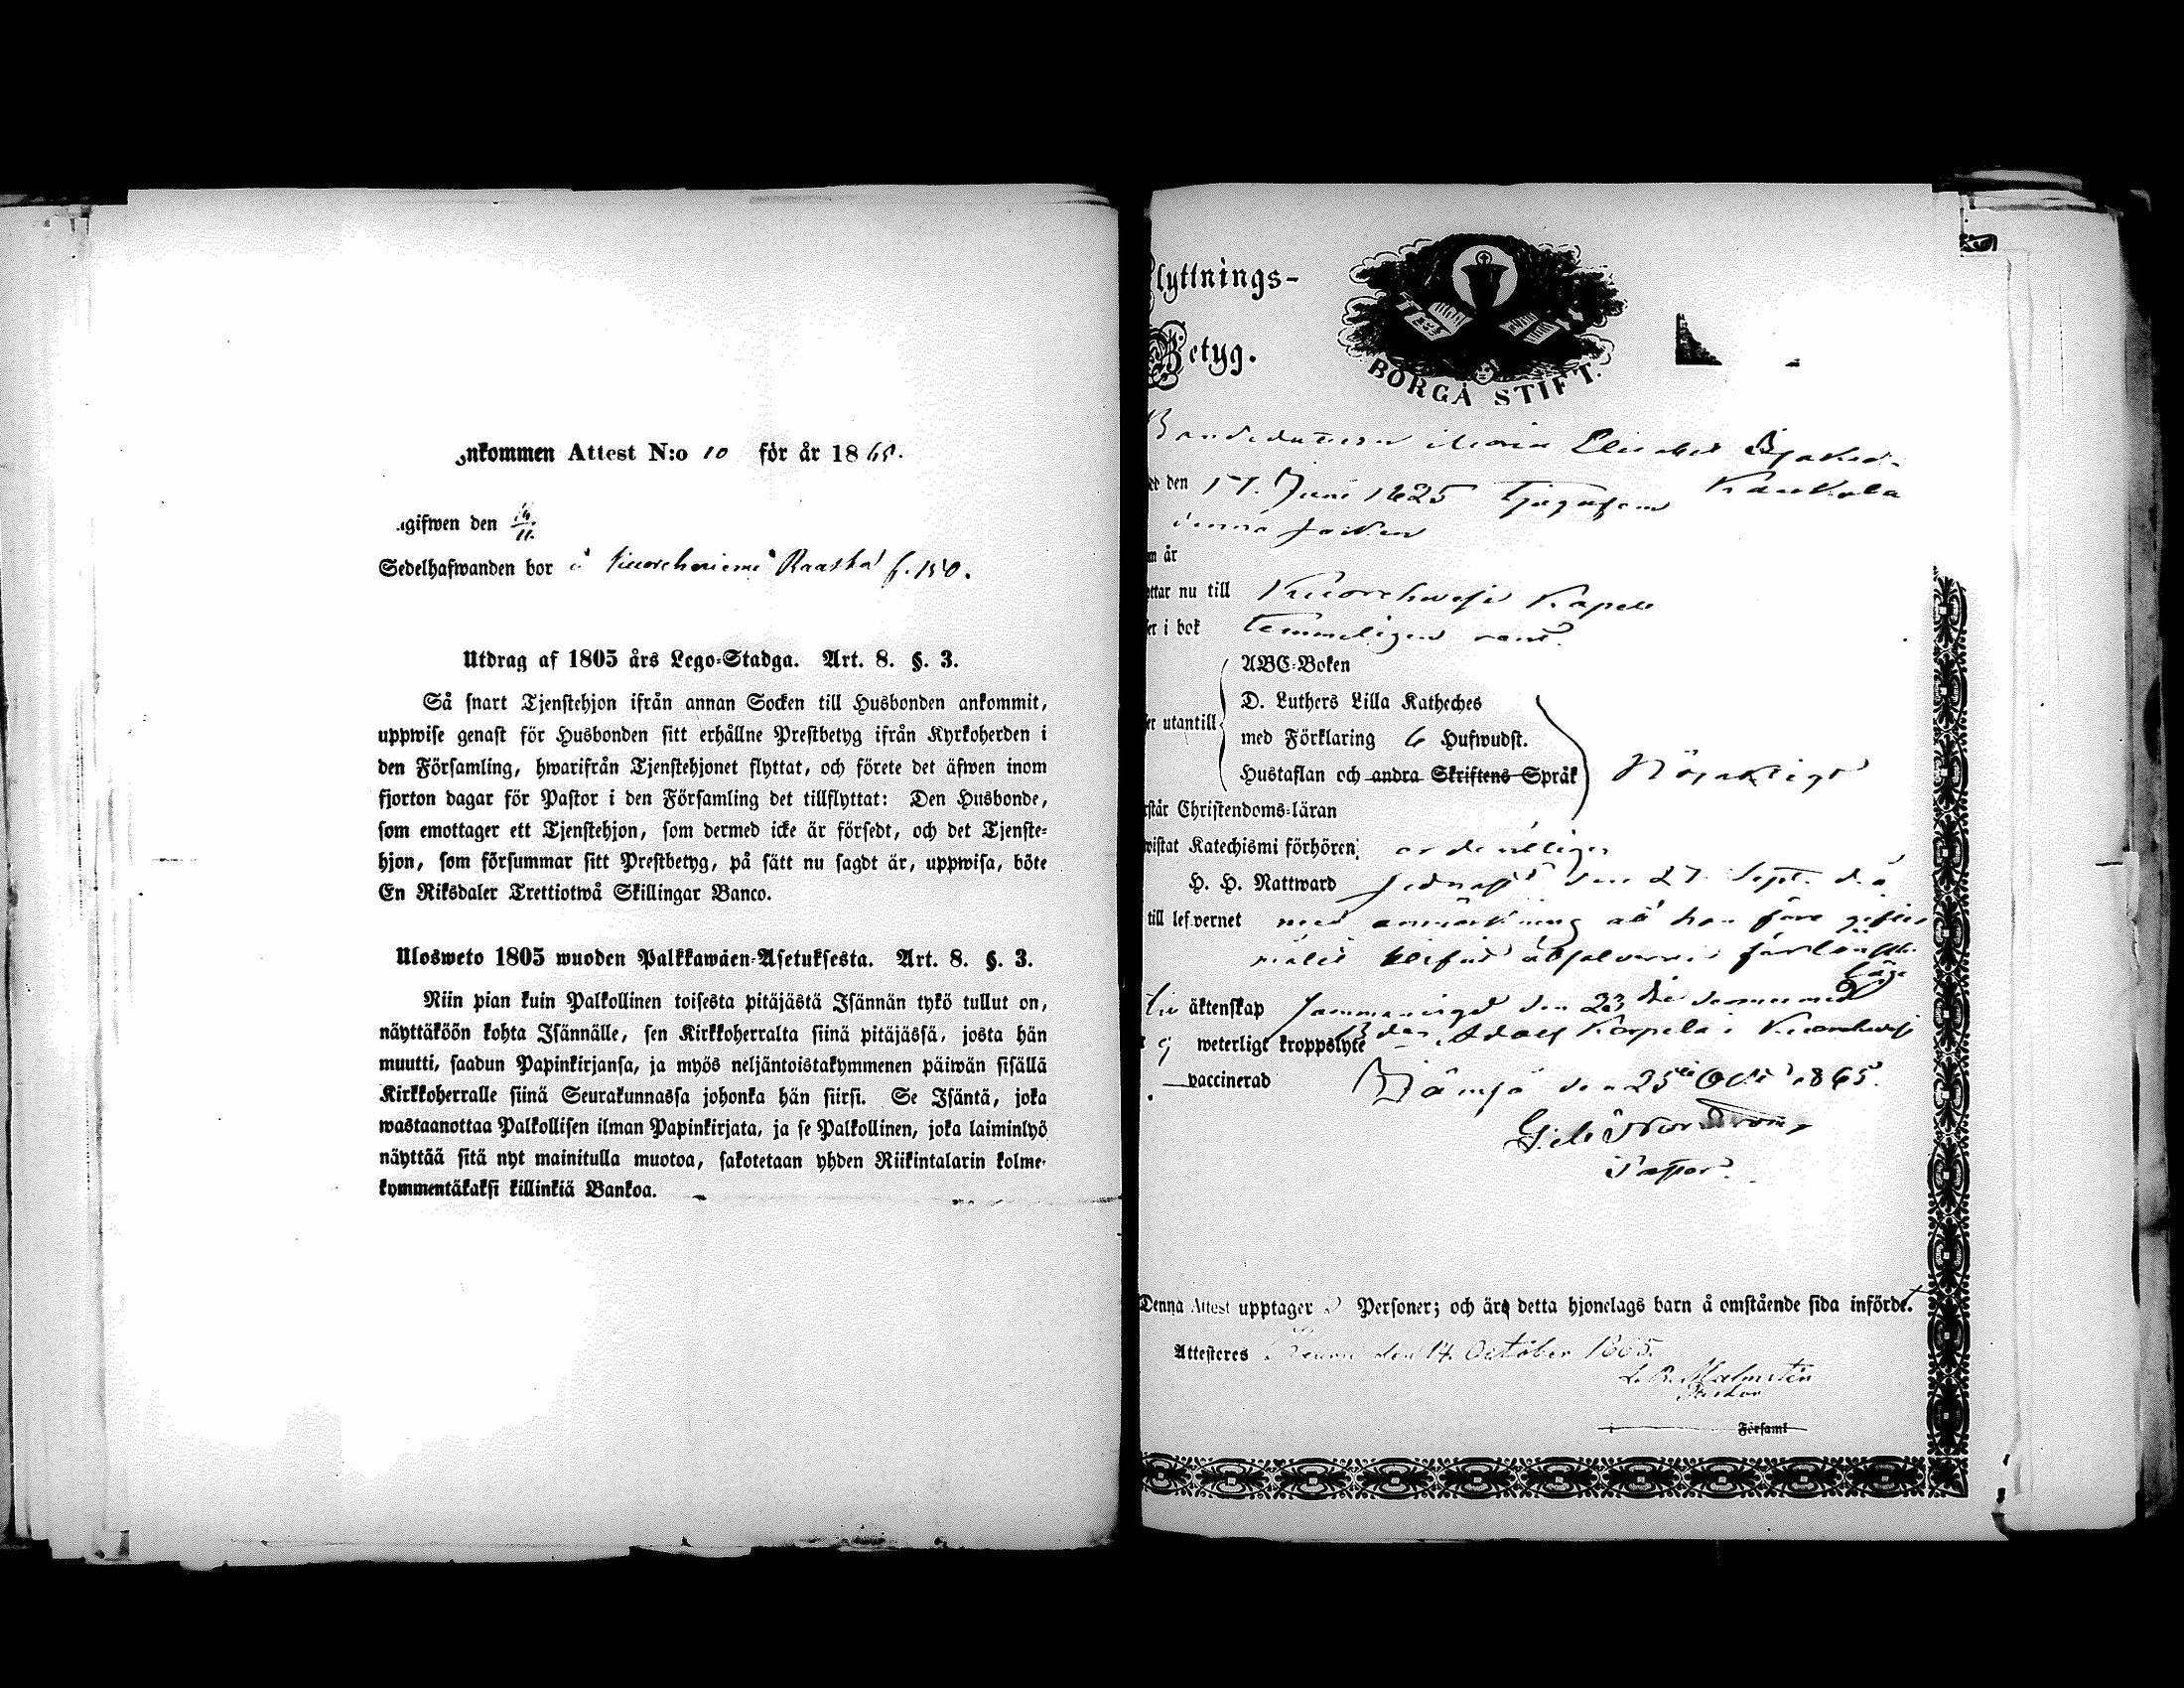 nkommen Attest N:o 10 för år 1865.
gifwen den
Sedelhafwanden bor å f. 150.
Utdrag af 1805 års Lego-Stadga. Art. 8. §. 3.
Så snart Tjenstehjon ifrån annan Socken till Husbonden ankommit,
uppwise genast för Husbonden sitt erhållne Prestbetyg ifrån Kyrkoherden i
den Församling, hwarifrån Tjenstehjonet flyttat, och förete det äfwen inom
fjorton dagar för Pastor i den Församling det tillflyttat: Den Husbonde,
som emottager ett Tjenstehjon, som dermed icke är försedt, och det Tjenste-
hjon, som försummar sitt Prestbetyg, på sätt nu sagdt är, uppwisa, böte
En Riksdaler Trettiotwå Skillingar Banco.
Ulosweto 1805 wuoden Palkkawäen-Asetuksesta. Art. 8. §. 3.
Niin pian kuin Palkollinen toisesta pitäjästä Isännän tykö tullut on,
näyttäköön kohta Isännälle, sen Kirkkoherralta siinä pitäjässä, josta hän
muutti, saadun Papinkirjansa, ja myös neljäntoistakymmenen päiwän sisällä
Kirkkoherralle siinä Seurakunnassa johonka hän siirsi. Se Isäntä, joka
wastaanottaa Palkollisen ilman Papinkirjata, ja se Palkollinen, joka laiminlyö
näyttää sitä nyt mainitulla muotoa, sakotetaan yhden Riikintalarin kolme-
kymmentäkaksi killinkiä Bankoa.
lyttnings-
Betyg.
BORGÅ STIFT.
Bondedottern Maria
den 17. Juni 1825 Kaukola
denna Socken
m år
ttar nu till Kuorehwesi Kapell
er i bok temmeligen rent.
ABC-Boken
D. Luthers Lilla Katheches
er utantill
med Förklaring 6 Hufwudst.
Hustaflan och andra Skriftens Språk Nöjaktigt
rstår Christendoms-läran
wistat Katechismi förhören ordentligen
H. H. Nattward sednast den 27 Sept. d. å
till lefvernet med anmärkning att hon före
äktenskap den 23
weterligt kroppslyte Adolf Korpela i Kuorehwesi
vaccinerad Jämsä den 25 Oct 1865.
Pastor.
Denna Attest upptager Personer; och äro detta hjonelags barn å omstående sida infördt.
Attesteres den 14. October 1865.
L. B. Malmstén
Pastor
i Församl